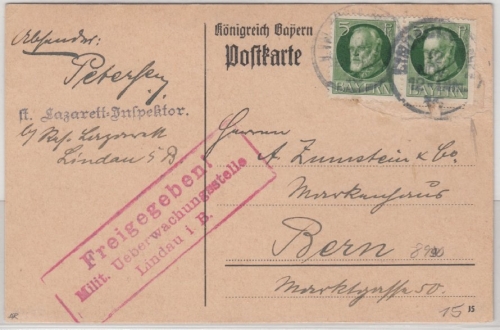 Absender:
Petersen
st. Lazarett-Inspektor.
Lindau i/B
Königreich Bayern
Postkarte
5
BAYERN
BAYERN
Freigegeben
Milit. Ueberwachungsstelle
Lindau i. B.
Herren
A. Zumstein & Co.
Markenhaus
Bern
Marktgasse 50.
15
15